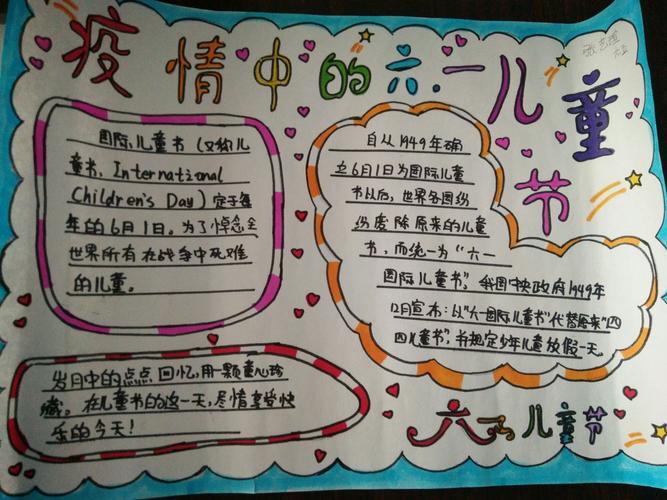 疫情中的六.一儿童节
国际儿童节（又称儿
童节，International
Children's Day）定于每
年的6月1日。为了悼念全
世界所有在战争中死难
的儿童。
自从1949年确
立6月1日为国际儿童
节以后，世界各国纷
纷废除原来的儿童
节，而统一为“六一
国际儿童节”，我国中央政府1949年
12月宣布：以“六一国际儿童节”代替原来“四
四儿童节”，并规定少年儿童放假一天。
岁月中的点点回忆，用一颗童心珍
藏。在儿童节的这一天，尽情享受快
乐的今天！
儿童节